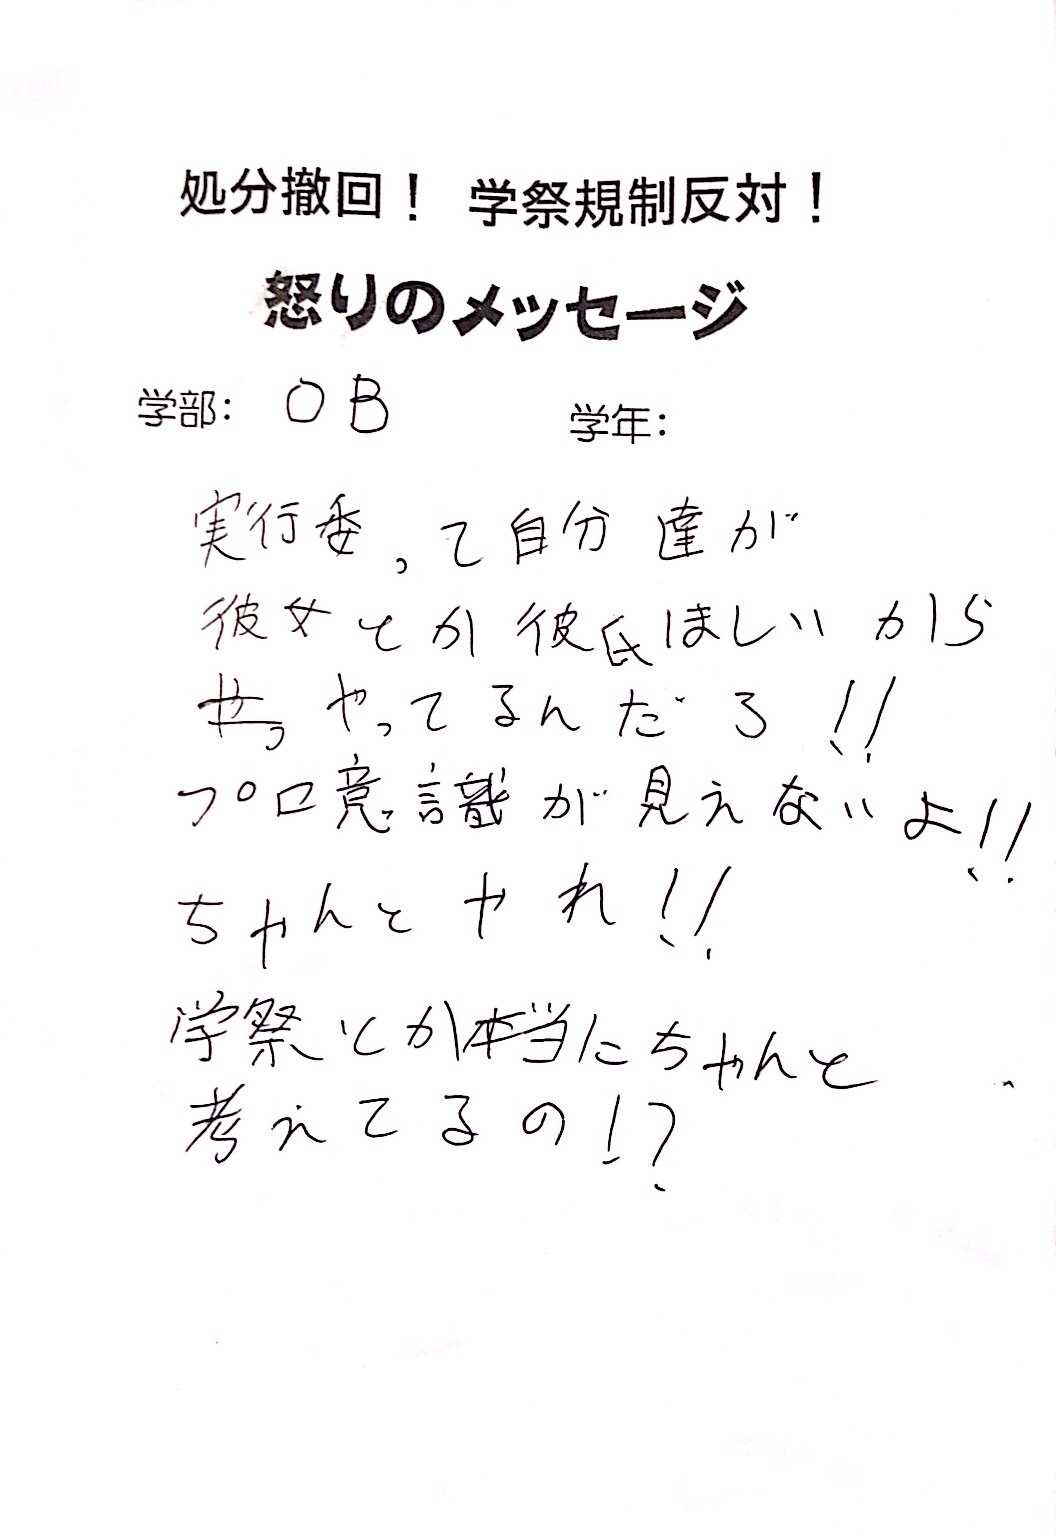 処分撤回！ 学祭規制反対！
怒りのメッセージ
学部: OB 学年:
実行委って自分達が
彼女とか彼氏ほしいから
やってるんだろ!!
プロ意識が見えないよ!!
ちゃんとやれ!!
学祭とか本当にちゃんと
考えてるの!?